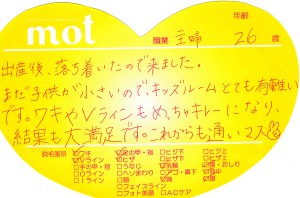 mot
年齢
職業 主婦 26 歳
出産後、落ち着いたので来ました。
まだ子供が小さいので、キッズルームとても有難い
です。ワキやVラインもめっちゃキレーになり、
結果も大満足です。これからも通いマス
脱毛箇所
ワキ
足の甲・指
ヒジ下
ヒジ上
Vライン
ヒザ
ヒザ下
ヒザ上
手の甲・指
うなじ
乳輪
腰・おしり
Oライン
ヘソまわり
アゴ・鼻下
背中
Iライン
顔
胸
腹
フェイスライン
フォト美顔
ACケア